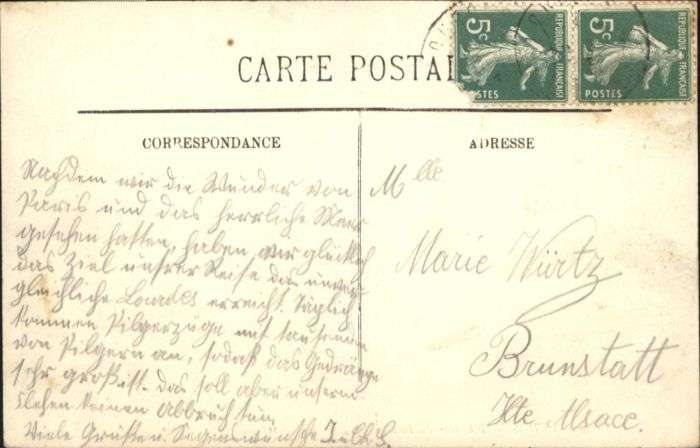 CARTE POSTAL
5c
RÉPUBLIQUE FRANÇAISE
POSTES
5c
RÉPUBLIQUE FRANÇAISE
POSTES
CORRESPONDANCE
Nachdem wir die Wunder von
Paris und das herrliche Meer
gesehen hatten, haben wir glücklich
das Ziel unsrer Reise das unver-
gleichliche Lourdes erreicht. Täglich
kommen Pilgerzüge mit tausenden
von Pilgern an, sodaß das Gedränge
sehr groß ist. das soll aber unserm
Flehen keinen Abbruch tun.
Viele Grüße u Segenswünsche
ADRESSE
Mlle
Marie Würtz
Brunstatt
Hte Alsace.